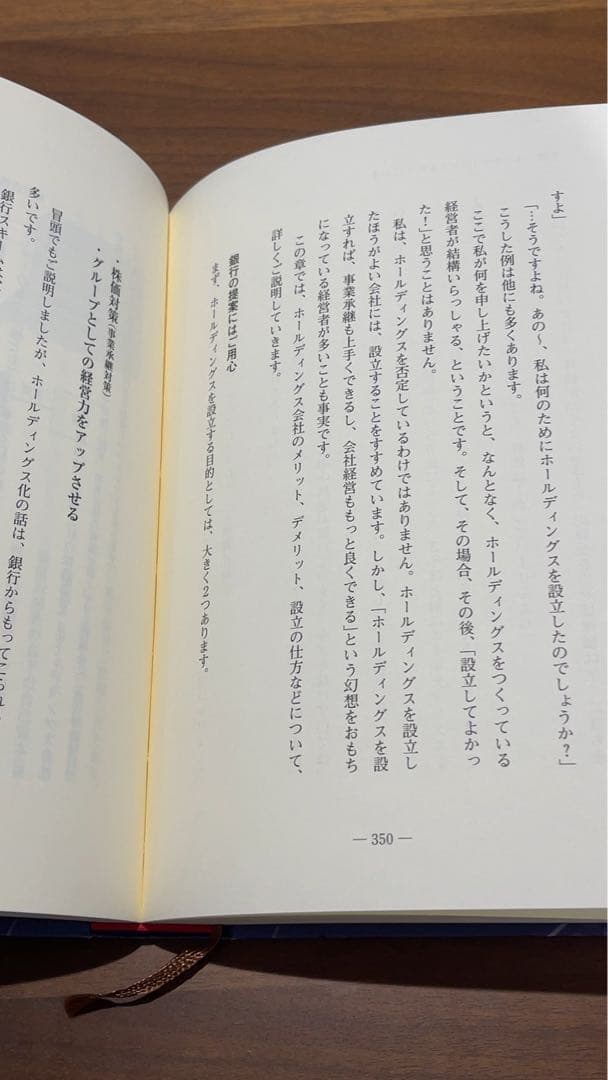 すよ」
「…そうですよね。あの〜、私は何のためにホールディングスを設立したのでしょうか？」
こうした例は他にも多くあります。
ここで私が何を申し上げたいかというと、なんとなく、ホールディングスをつくっている
経営者が結構いらっしゃる、ということです。そして、その場合、その後、「設立してよかっ
た！」と思うことはありません。
私は、ホールディングスを否定しているわけではありません。ホールディングスを設立し
たほうがよい会社には、設立することをすすめています。しかし、「ホールディングスを設
立すれば、事業承継も上手くできるし、会社経営ももっと良くできる」という幻想をおもち
になっている経営者が多いことも事実です。
この章では、ホールディングス会社のメリット、デメリット、設立の仕方などについて、
詳しくご説明していきます。
銀行の提案にはご用心
まず、ホールディングスを設立する目的としては、大きく2つあります。
— 350 —
・株価対策（事業承継対策）
・グループとしての経営力をアップさせる
冒頭でもご説明しましたが、ホールディングス化の話は、銀行からもってこられ
多いです。
銀行スキ